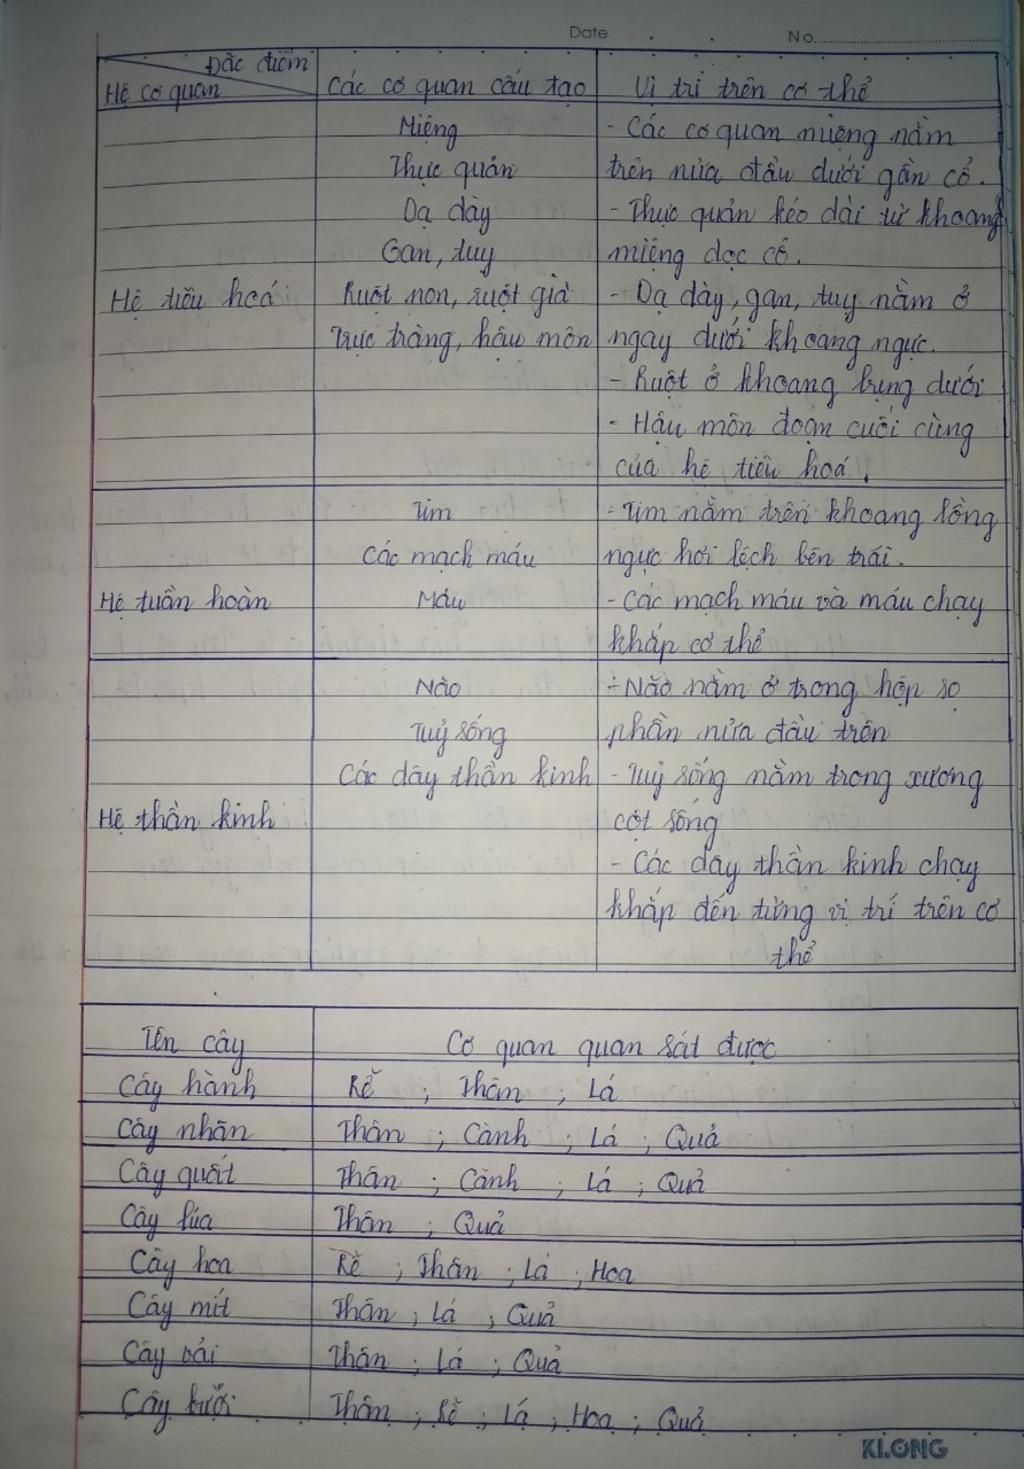 Date No
Đặc điểm
Hệ cơ quan
Các cơ quan cấu tạo
Vị trí trên cơ thể
Miệng
Thực quản
Dạ dày
Gan, tuỵ
Hệ tiêu hoá
Ruột non, ruột già
Trực tràng, hậu môn
- Các cơ quan miệng nằm
trên nửa đầu dưới gần cổ.
- Thực quản kéo dài từ khoang
miệng dọc cổ.
- Dạ dày, gan, tuỵ nằm ở
ngay dưới khoang ngực.
- Ruột ở khoang bụng dưới
- Hậu môn đoạn cuối cùng
của hệ tiêu hoá.
Hệ tuần hoàn
Tim
Các mạch máu
Máu
- Tim nằm trên khoang lồng
ngực hơi lệch bên trái.
- Các mạch máu và máu chạy
khắp cơ thể
Hệ thần kinh
Não
Tuỷ sống
Các dây thần kinh
- Não nằm ở trong hộp sọ
phần nửa đầu trên
- Tuỷ sống nằm trong xương
cột sống
- Các dây thần kinh chạy
khắp đến từng vị trí trên cơ
thể
Tên cây Cơ quan quan sát được
Cây hành Rễ ; Thân ; Lá
Cây nhãn Thân ; Cành ; Lá ; Quả
Cây quất Thân ; Cành ; Lá ; Quả
Cây lúa Thân ; Quả
Cây hoa Rễ ; Thân ; Lá ; Hoa
Cây mít Thân ; Lá ; Quả
Cây vải Thân ; Lá ; Quả
Cây bưởi Thân ; Rễ ; Lá ; Hoa ; Quả
KLONG